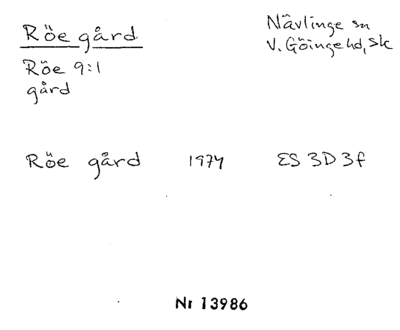 Röe gård
Nävlinge sn
V. Göinge hd, Sk
Röe 9:1
gård
Röe gård 1974 ES 3D3f
Nr 13986